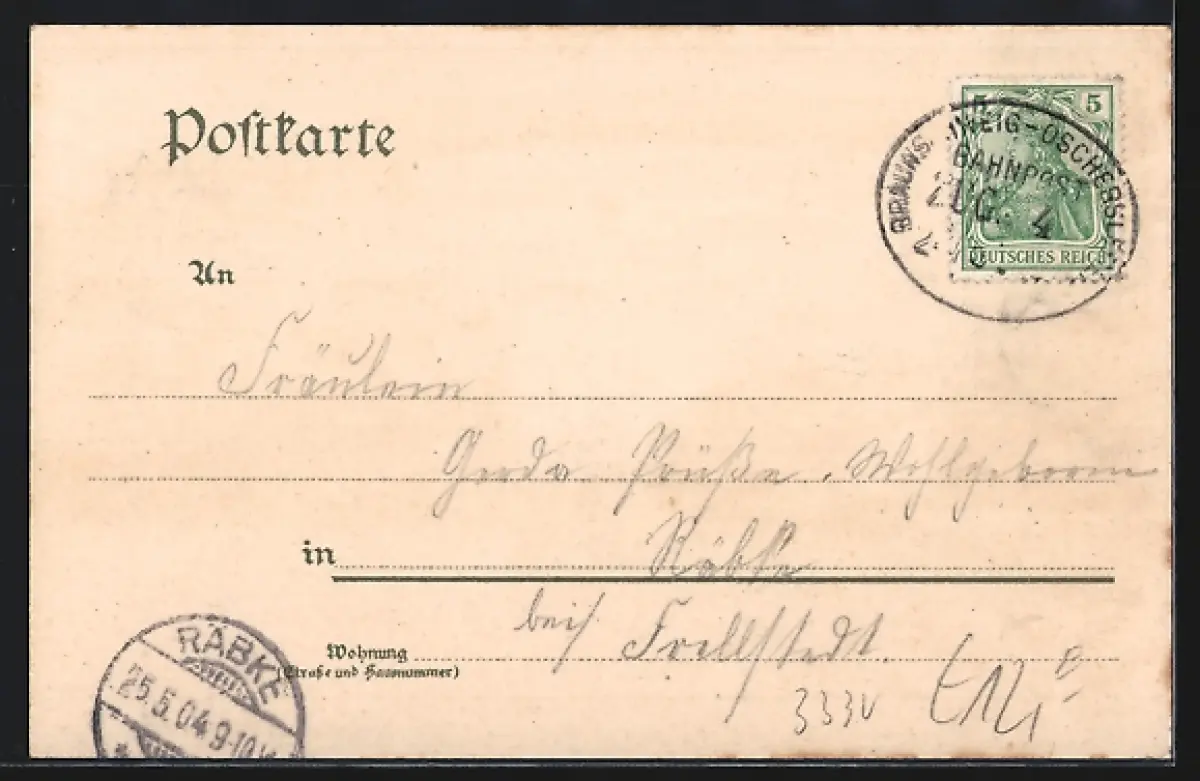 Postkarte
5 5
BRAUNSCHWEIG-OSCHERSLEBEN
BAHNPOST
ZUG. 4
DEUTSCHES REICH
An
Fräulein
Gerda Prüße, Wohlgeboren
in Räbke
bei Frellstedt.
Wohnung
(Straße und Hausnummer)
RÄBKE
25.5.04 9-10V
333V